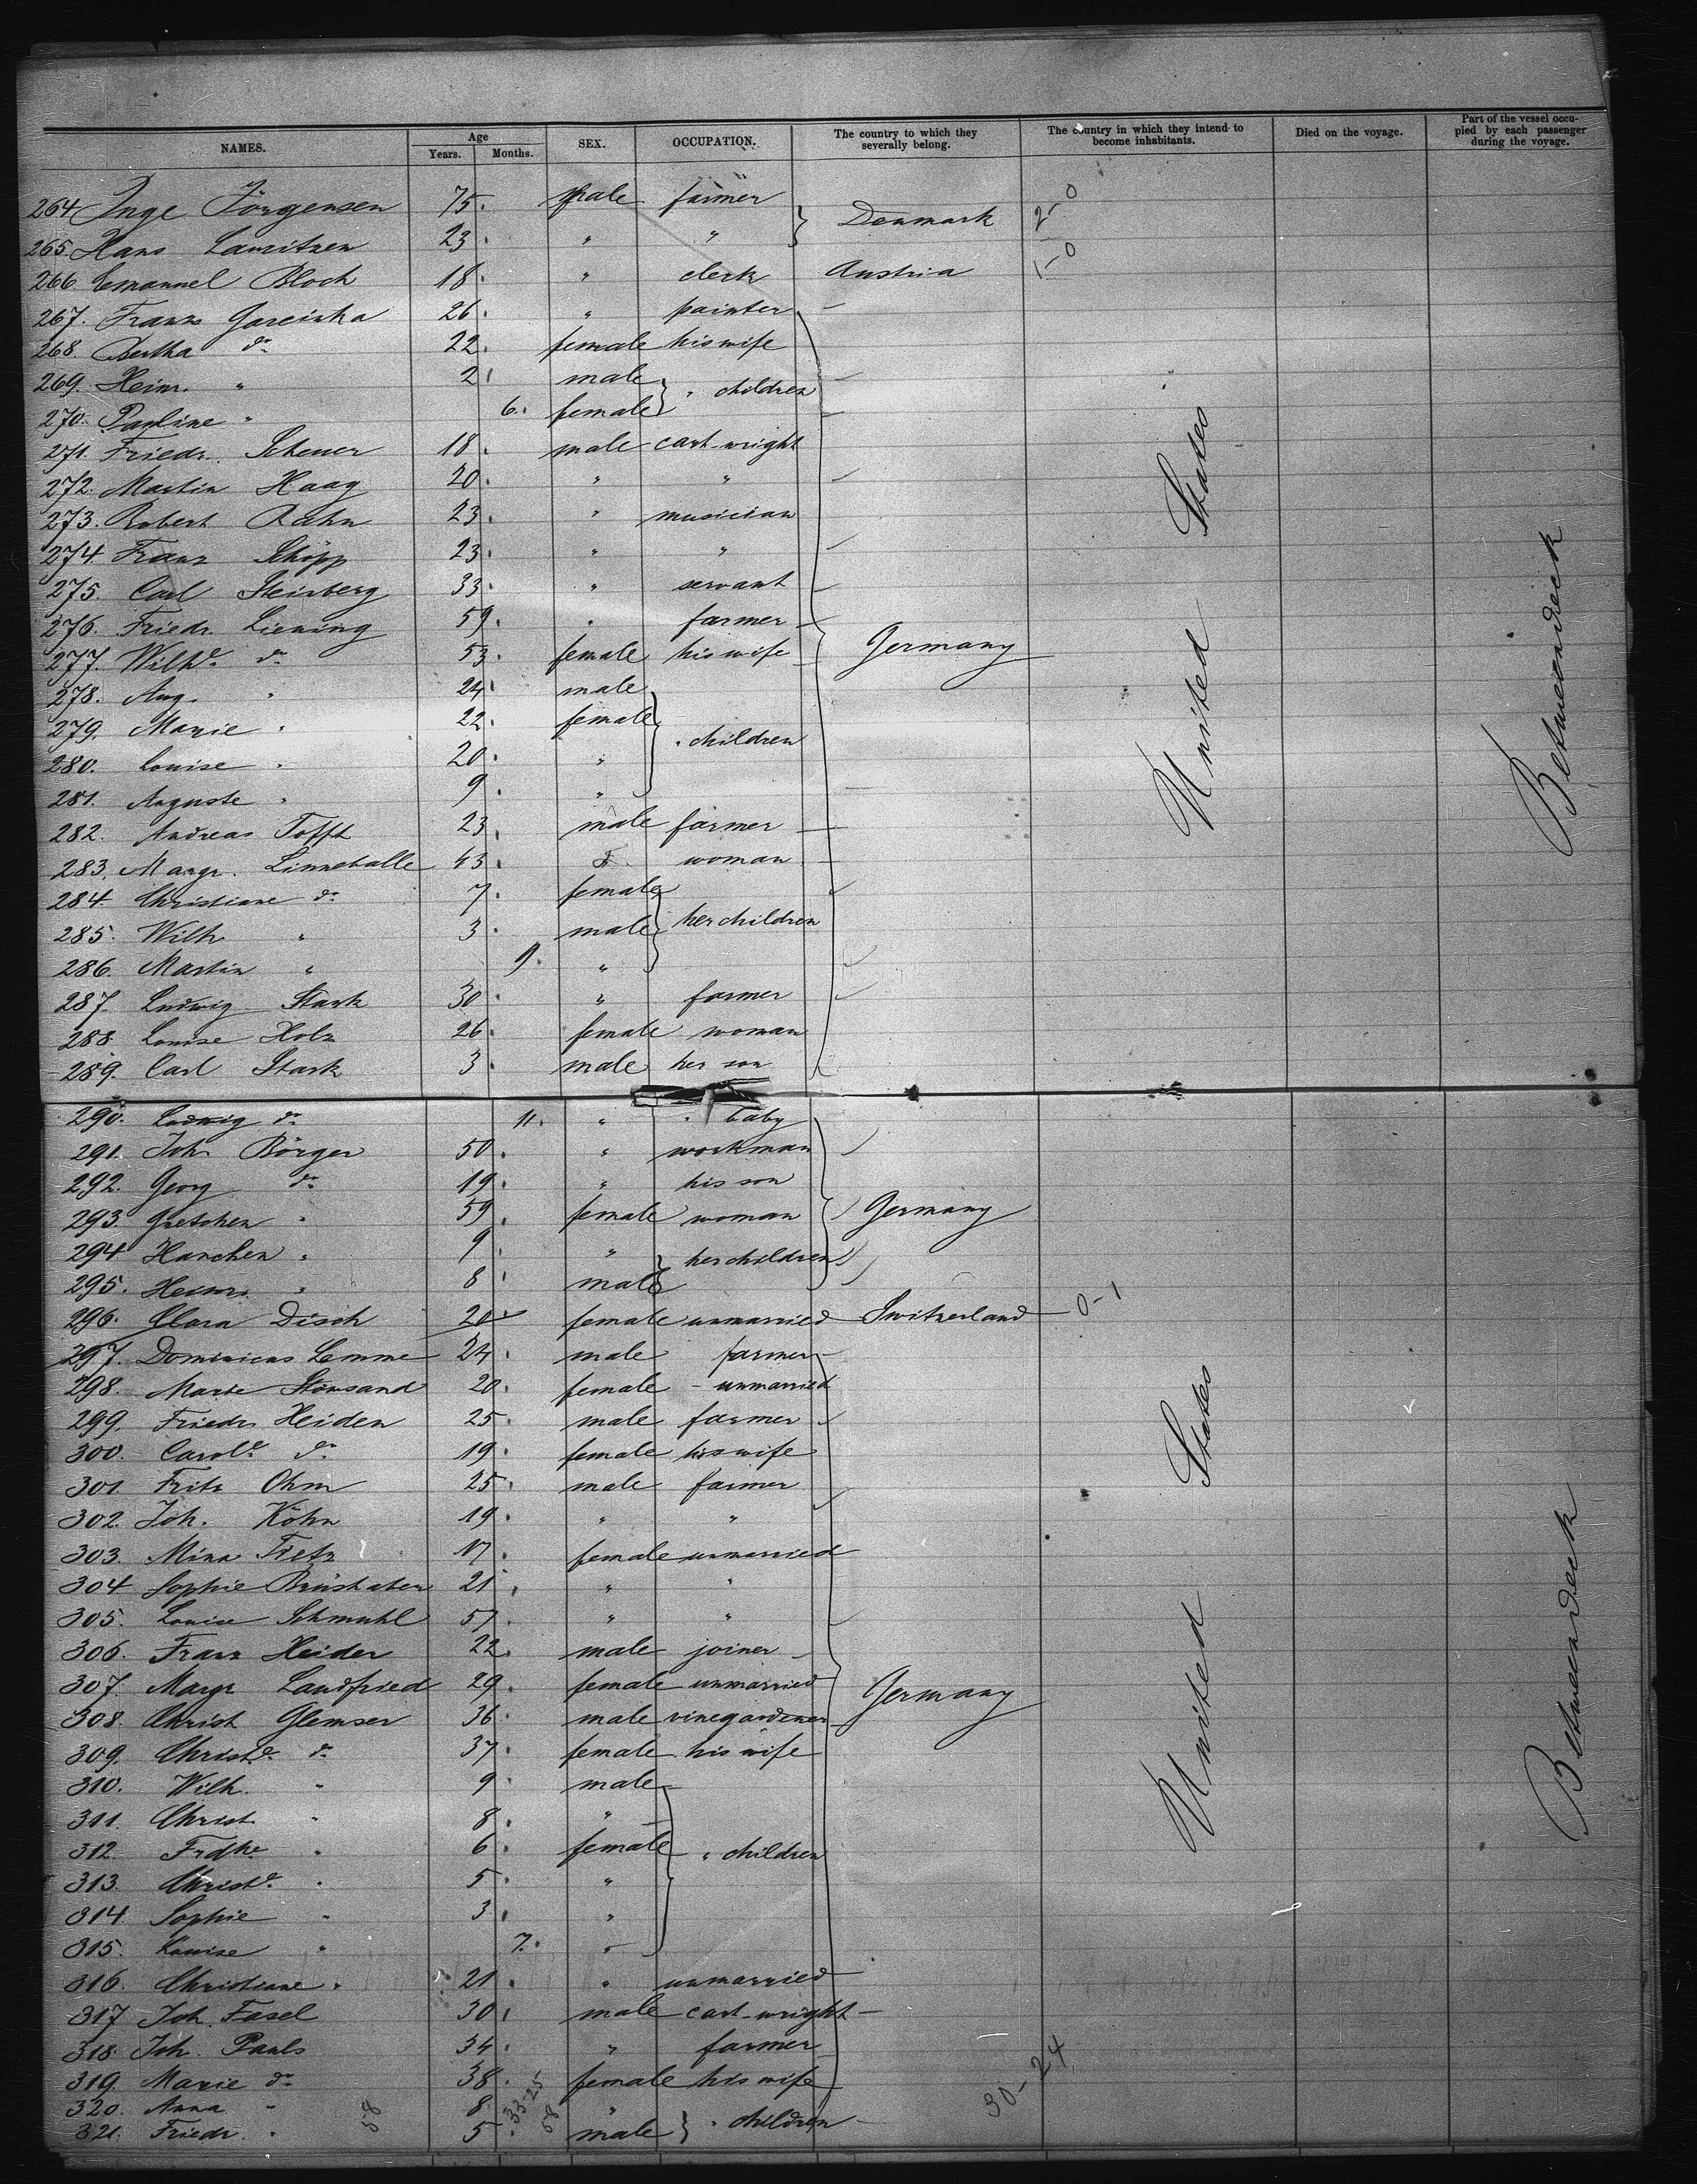 NAMES. Age Years. Months. SEX. OCCUPATION. The country to which they severally belong. The country in which they intend to become inhabitants. Died on the voyage. Part of the vessel occupied by each passenger during the voyage.
264 Inge Jörgensen 75. male farmer } Denmark 2-0
265. Hans Lauritzen 23. " "
266. Emanuel Bloch 18. " clerk Austria 1-0
267. Franz Gareinka 26. " painter
268. Bertha do 22. female his wife
269. Heinr. " 2. male } " children
270. Pauline " 6. female
271. Friedr. Scheuer 18. male cart-wright
272. Martin Haag 20. " "
273. Robert Rahn 23. " musician
274. Franz Schöpp 23. " "
275. Carl Steinberg 33. " servant
276. Friedr. Liening 59. " farmer Germany
277. Wilhe. do 53. female his wife
278. Aug. " 24. male
279. Marie " 22. female } " children
280. Louise " 20. "
281. Auguste " 9. "
282. Andreas Tofft 23. male farmer
283. Margr. Linneballe 43. F. woman
284. Christiane do 7. female } her children
285. Wilh. " 3. male
286. Martin " 9. "
287. Ludwig Stark 30. " farmer
288. Louise Holz 26. female woman
289. Carl Stark 3. male her son
United States Betweendeck
290. Ludwig do 11. " " baby
291. Joh. Börger 50. " workman
292. Georg do 19. " his son
293. Gretchen " 59. female woman Germany
294 Hanchen " 9 " } her children
295. Heinr. " 8. male
296. Clara Disch 20 female unmarried Switzerland 0-1
297. Dominicus Lemme 24. male farmer
298. Marie Stöwsand 20. female unmarried
299. Friedr. Heiden 25. male farmer
300. Carole. do 19. female his wife
301. Fritz Ohm 25. male farmer
302. Joh. Köhn 19. " "
303. Mina Tietz 17. female unmarried
304 Sophie Brüshaber 21. " "
305. Louise Schmuhl 57. " "
306. Franz Heider 22. male joiner
307. Margr. Landfried 29. female unmarried Germany
308. Christ. Glemser 36. male vinegardener
309. Christe. do 37. female his wife
310. Wilh. " 9. male
311. Christ. " 8. "
312. Frdke " 6. female } " children
313. Christe. " 5. "
314 Sophie " 3. "
315. Louise " 7. "
316. Christiane " 21. " unmarried
317 Joh. Fasel 30. male cart-wright
318. Joh. Pauls 34. " farmer
319. Marie do 38. female his wife
320. Anna " 8. " } " children
321. Friedr. " 5. male
United States Betweendeck
58 33-25 58 30-24